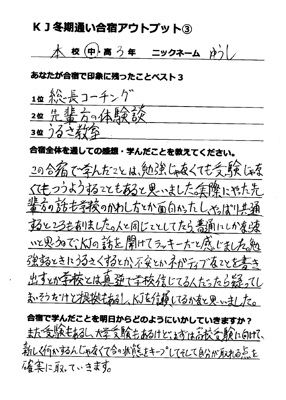 KJ冬期通い合宿アウトプット③
本 校 中・高 3 年 ニックネーム ゆうし
あなたが合宿で印象に残ったことベスト3
1位 総長コーチング
2位 先輩方の体験談
3位 うるさ教室
合宿全体を通しての感想・学んだことを教えてください。
この合宿で学んだことは、勉強じゃなくても受験じゃな
くてもつうようすることもあると思いました。実際にやった先
輩方の話も学校のかわし方とか面白かったし、やっぱり共通
するところもありました。人と同じことしてたら普通にしかなれな
いと思うのでKJの話を聞けてラッキーだと感じました。勉
強するときにうるさくするとか、不安とかネガティブなことを書き
出すとか学校とは真逆で学校信じてる人だったら疑ってし
まいそうだけど根拠もあるし、KJを信頼してるからなと思いました。
合宿で学んだことを明日からどのようにいかしていきますか?
まだ受験もあるし、大学受験もあるけどまずは高校受験に向けて、
新しく何かするんじゃなくて今の状態をキープしてそして自分が取れる点を
確実に取っていきます。